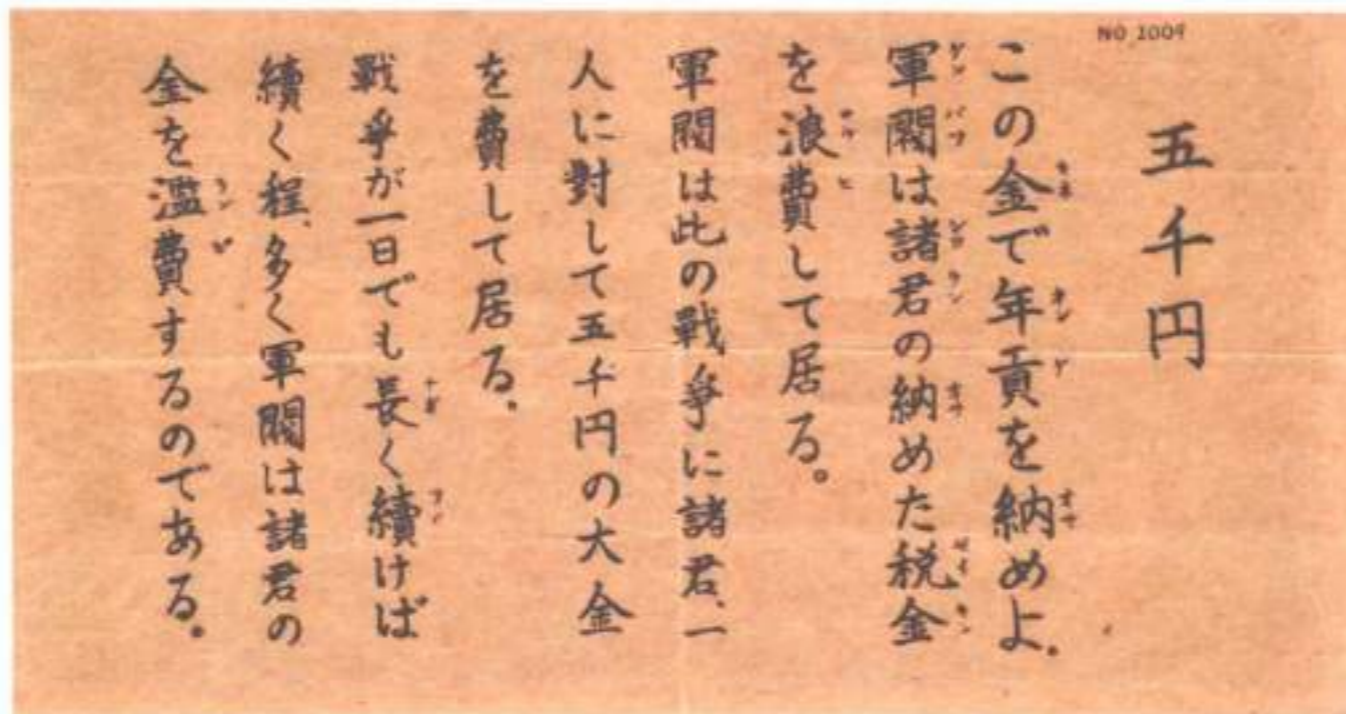 NO 1009
五千円
この金で年貢を納めよ。
軍閥は諸君の納めた税金
を浪費して居る。
軍閥は此の戰爭に諸君、一
人に對して五千円の大金
を費して居る。
戰爭が一日でも長く續けば
續く程、多く軍閥は諸君の
金を濫費するのである。